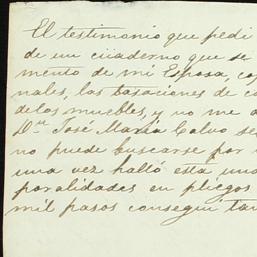 El testimonio que pedi
de un cuaderno que se
mento de mi Esposa, co
nales, las tasaciones de c
de los muebles, y no me a
Dn. José María Calvo se
no puede buscarse por
una vez halló esta una
poralidades en pliegos
mil pasos consegui tan